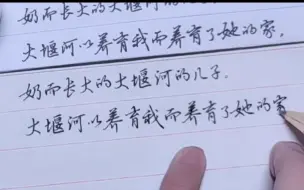 奶而长大的大堰河的儿子。
大堰河以养育我而养育了她的家，
奶而长大的大堰河的儿子。
大堰河以养育我而养育了她的家